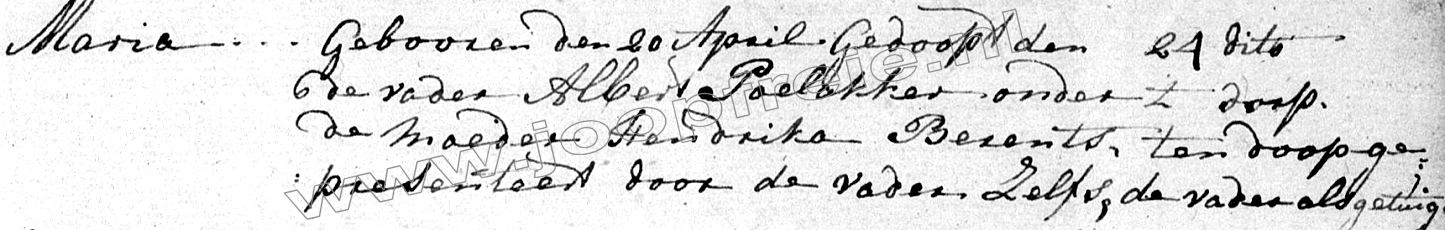 Maria . . . . Gebooren den 20 April. Gedoopt den 24 dito
de vader Albert Poelakker onder t dorp.
de moeder Hendrika Berents, ten doop ge:
presenteert door de vader Zelfs, de vader als getuig.
www.joopfreije.nl